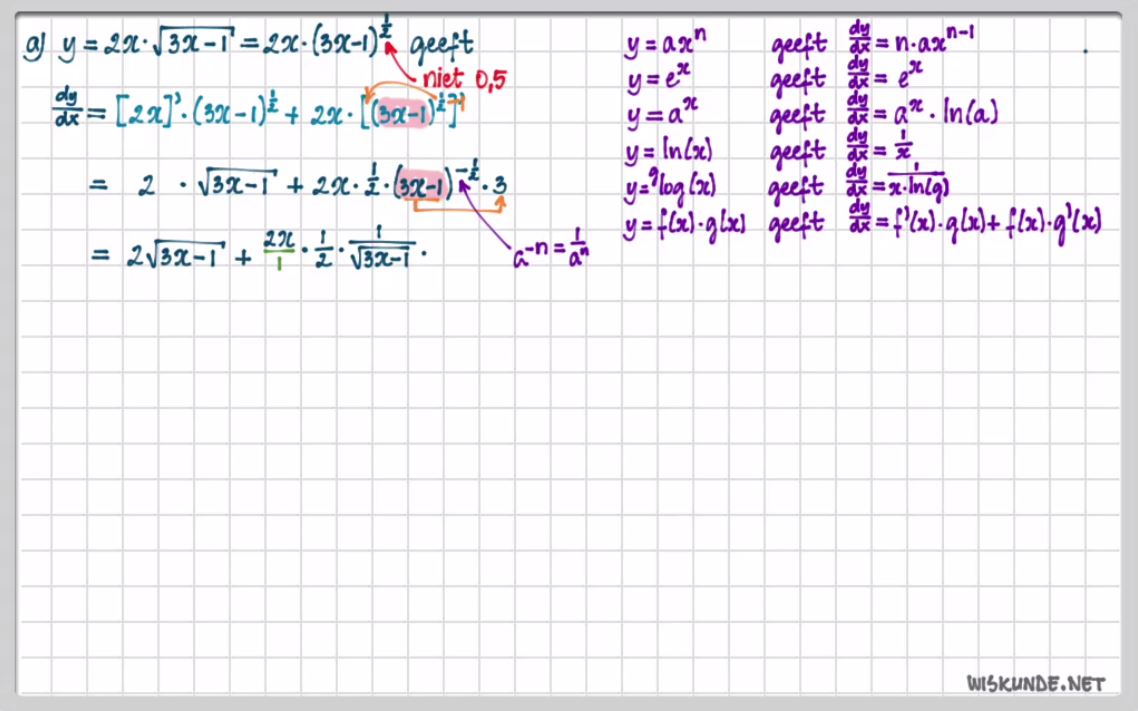 a) y = 2x · √(3x−1) = 2x · (3x−1)^½ geeft
niet 0,5
dy/dx = [2x]' · (3x−1)^½ + 2x · [(3x−1)^½]'
= 2 · √(3x−1) + 2x · ½ · (3x−1)^−½ · 3
= 2√(3x−1) + 2x/1 · 1/2 · 1/√(3x−1) ·
a^−n = 1/a^n
y = ax^n geeft dy/dx = n · ax^n−1
y = e^x geeft dy/dx = e^x
y = a^x geeft dy/dx = a^x · ln(a)
y = ln(x) geeft dy/dx = 1/x
y = ^g log(x) geeft dy/dx = 1/x·ln(g)
y = f(x) · g(x) geeft dy/dx = f'(x) · g(x) + f(x) · g'(x)
WISKUNDE.NET